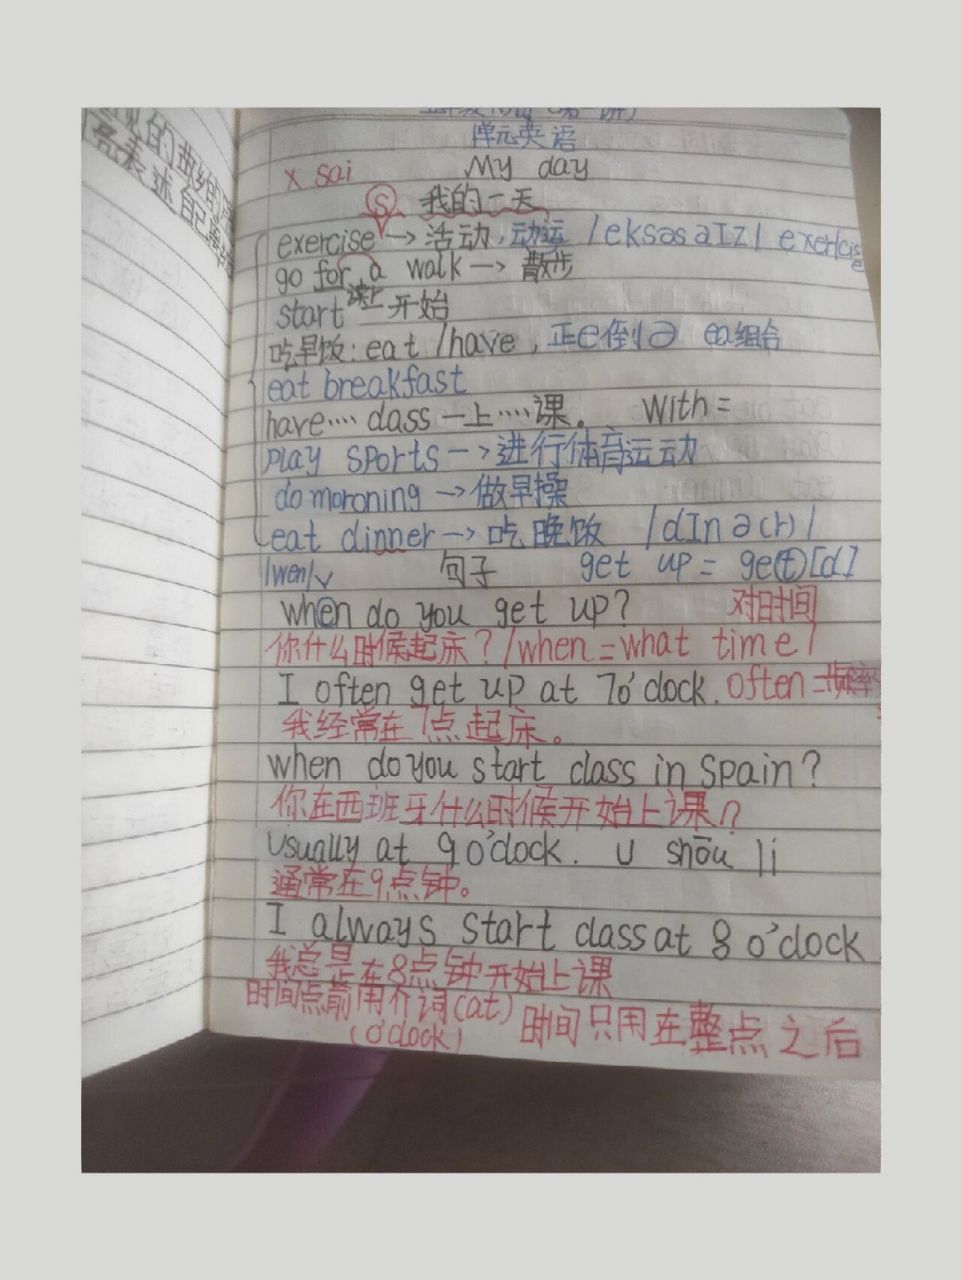 单元英语
x sai My day
S 我的一天
exercise → 活动,动运 /eksəsaIz/ exercise
go for a walk → 散步
读上
start 开始
吃早饭: eat /have, 正e倒ə ea组合
eat breakfast
have…. class 一上….课。 with =
play sports → 进行体育运动
do moroning → 做早操
eat dinner → 吃晚饭 /dInə(r)/
/wen/ 句子 get up = ge(t)[d]
when do you get up? 对时间
你什么时候起床?/when = what time/
I often get up at 7o'clock. often = 频率
我经常在7点起床。
when do you start class in Spain?
你在西班牙什么时候开始上课?
Usually at 9 o'clock. U shōu li
通常在9点钟。
I always start class at 8 o'clock
我总是在8点钟开始上课
时间点前用介词(at) 时间只用在整点之后
(o'clock)